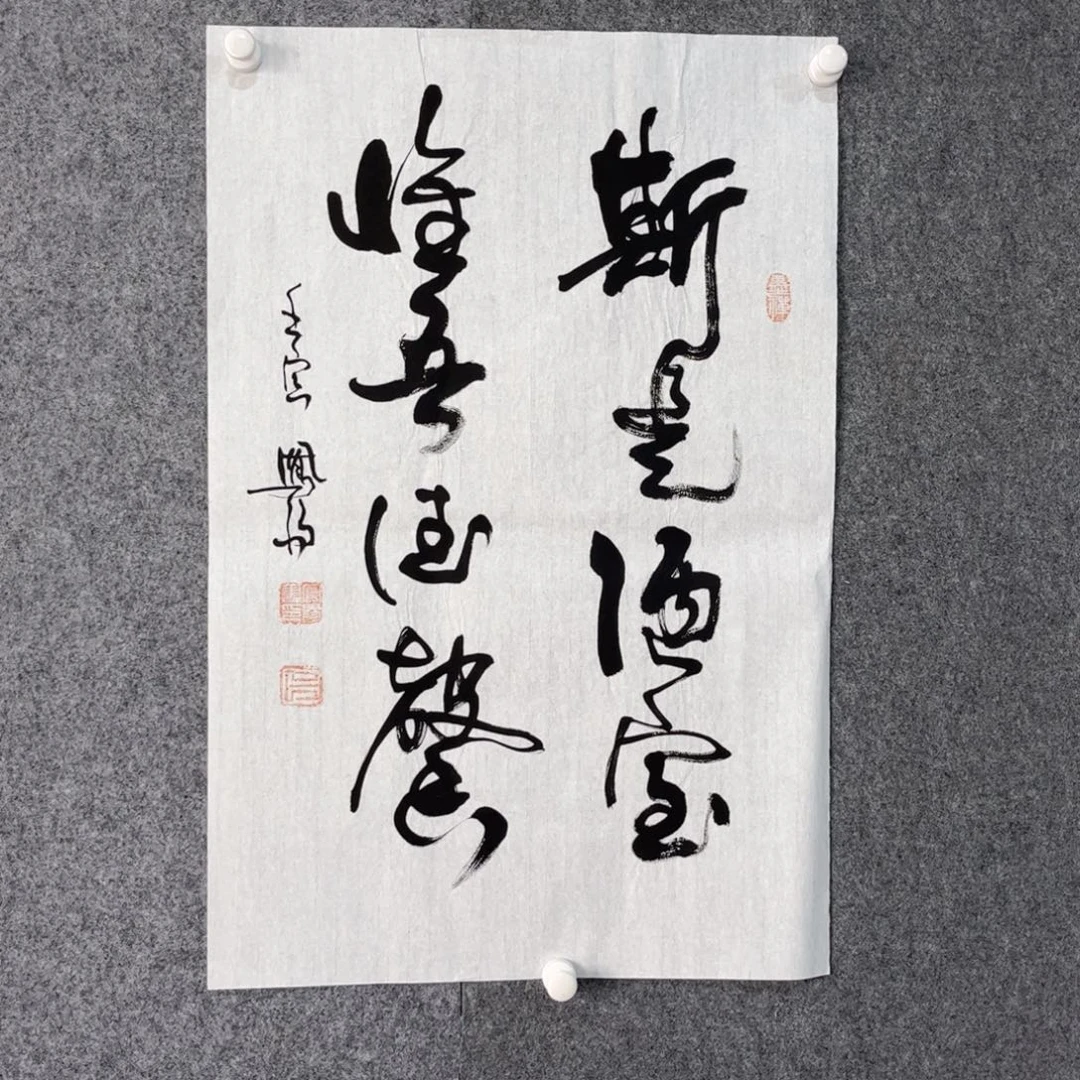 斯是陋室
惟吾德馨
壬寅